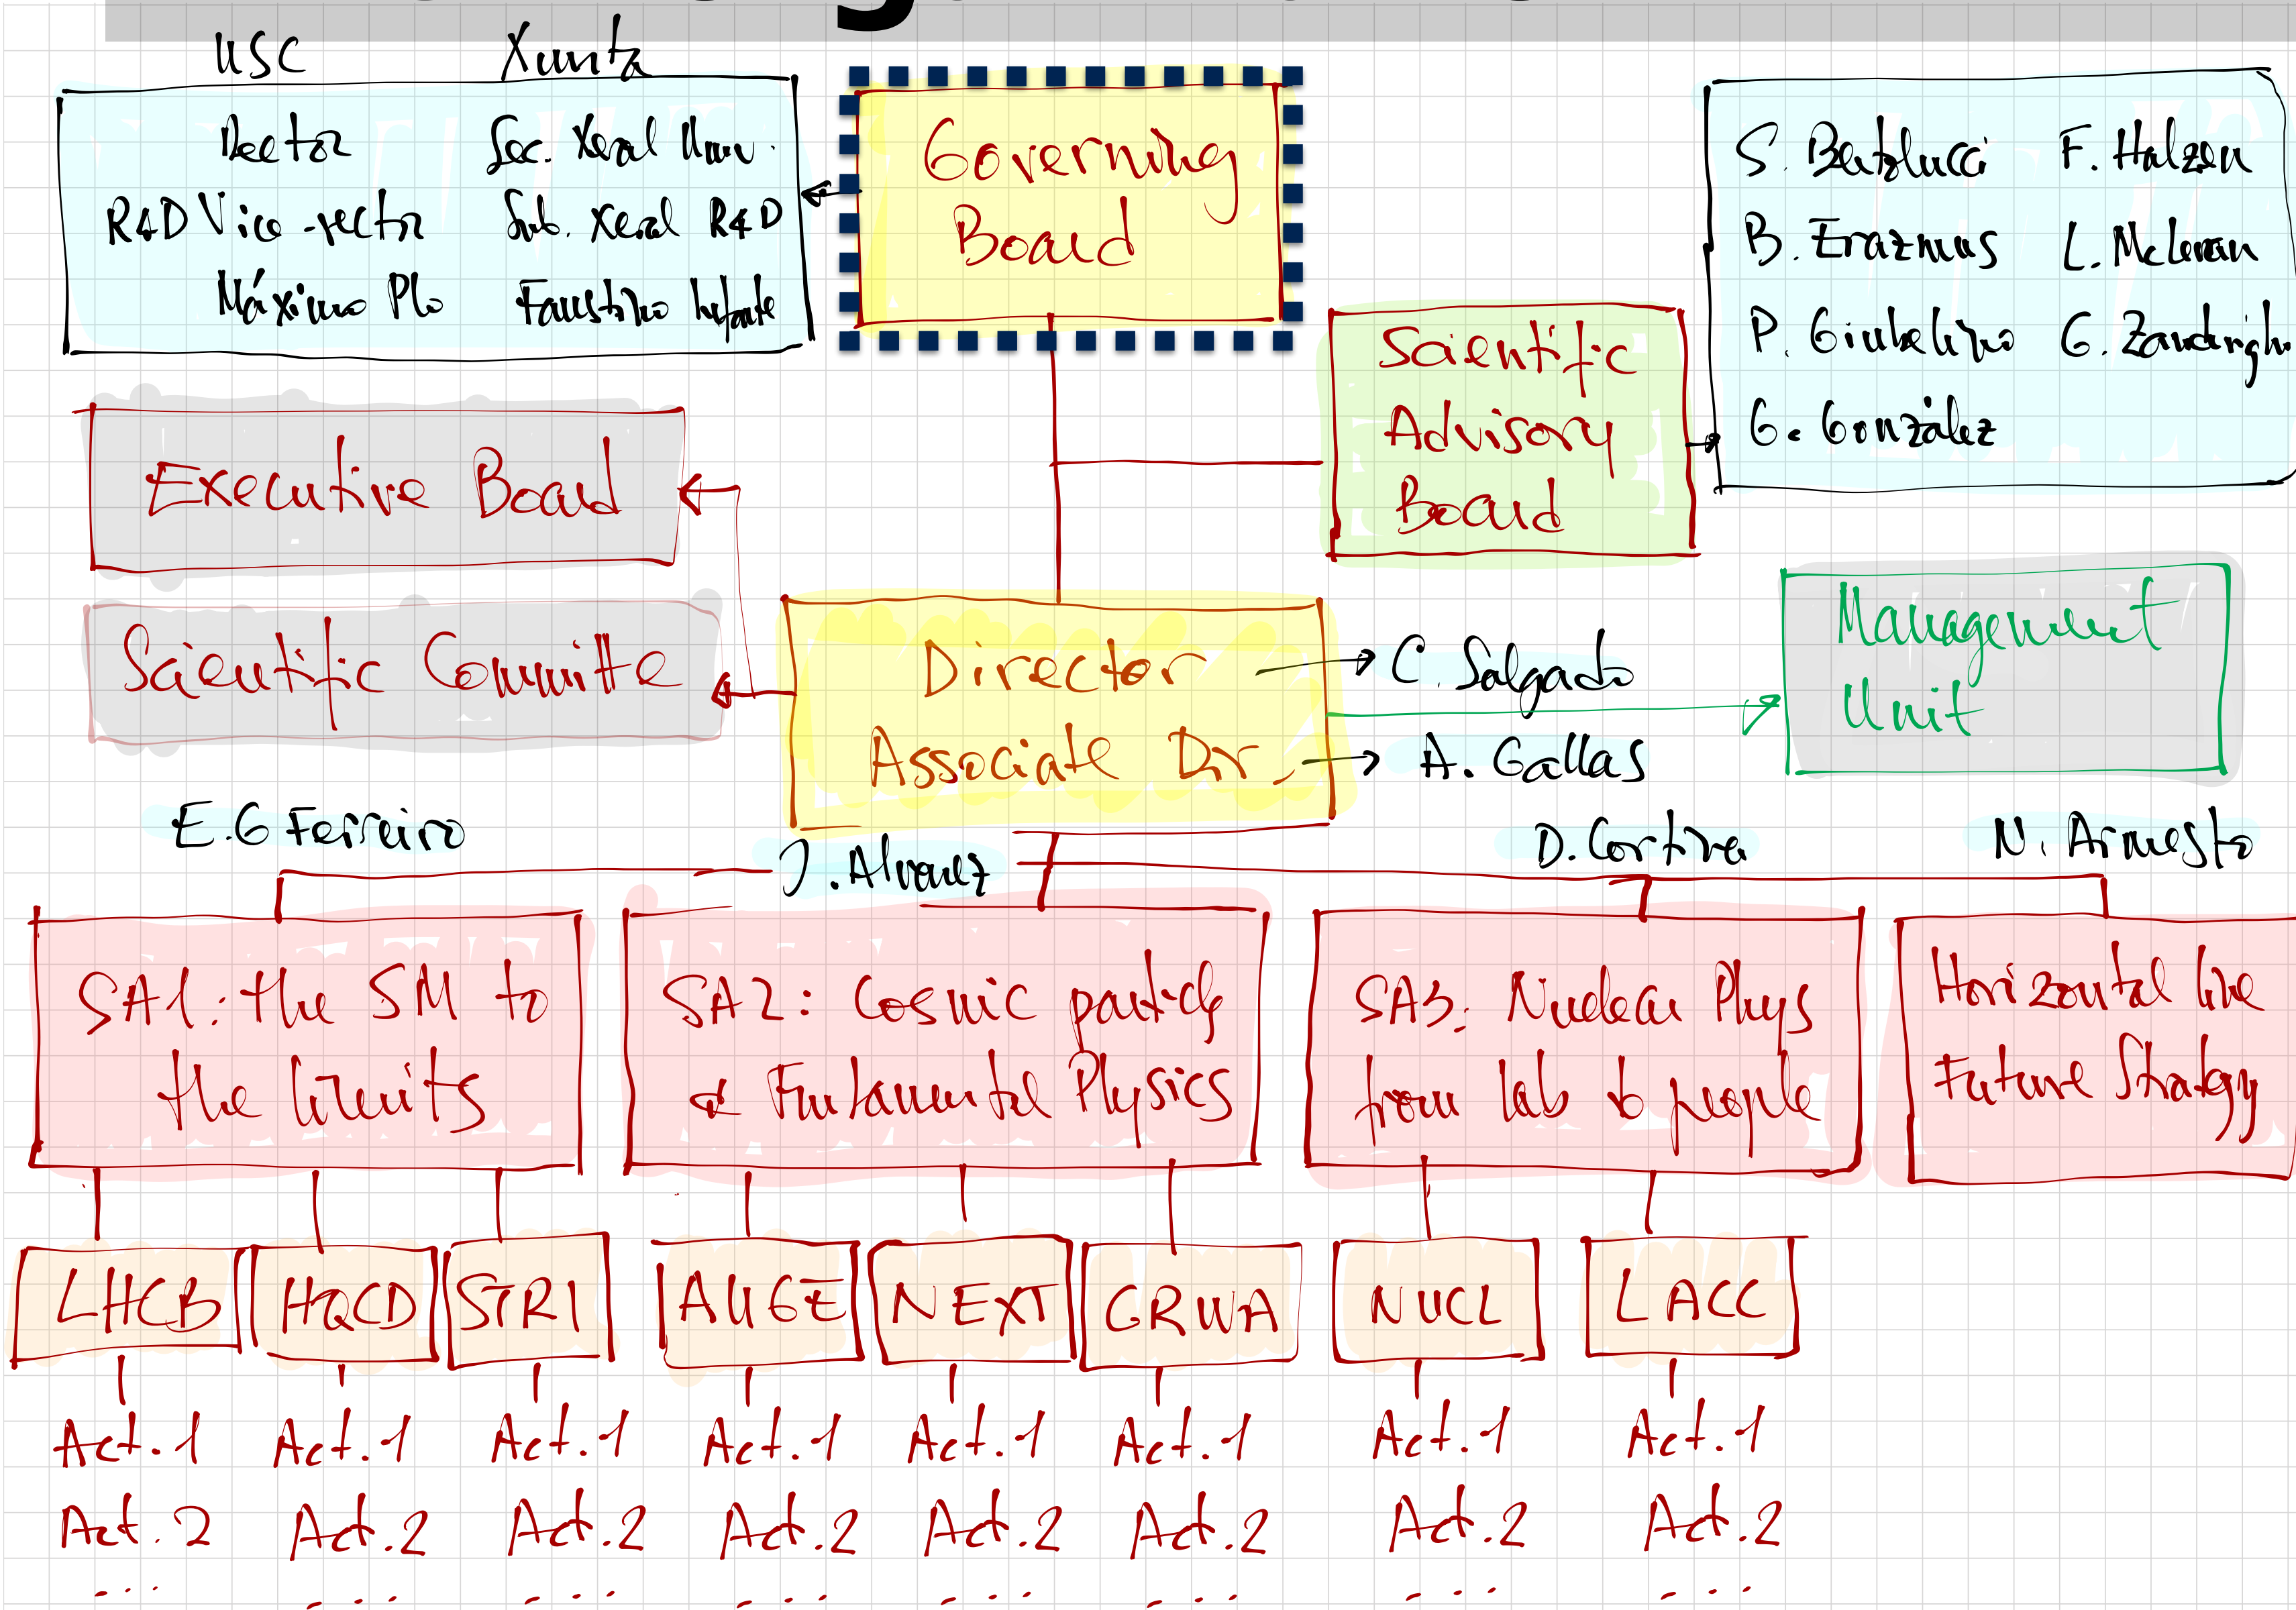 USC Xunta
Rector Sec. Xeral Univ.
R&D Vice-rector Sub. Xeral R&D
Máximo Plo Faustino Infante
Governing
Board
S. Bertolucci F. Halzen
B. Erazmus L. McLerran
P. Giubelino G. Zanderigh
G. González
Scientific
Advisory
Board
Executive Board
Scientific Committe
Director
Associate Dir.
C. Salgado
A. Gallas
Management
Unit
E.G Ferreiro
J. Alvarez
D. Cortina
N. Armesto
SA1: the SM to
the limits
SA2: Cosmic particle
& Funtamental Physics
SA3: Nuclear Phys
from lab to people
Horizontal line
Future Strategy
LHCB HQCD STRI AUGE NEXT GRWA NUCL LACC
Act.1 Act.1 Act.1 Act.1 Act.1 Act.1 Act.1 Act.1
Act.2 Act.2 Act.2 Act.2 Act.2 Act.2 Act.2 Act.2
... ... ... ... ... ... ... ...